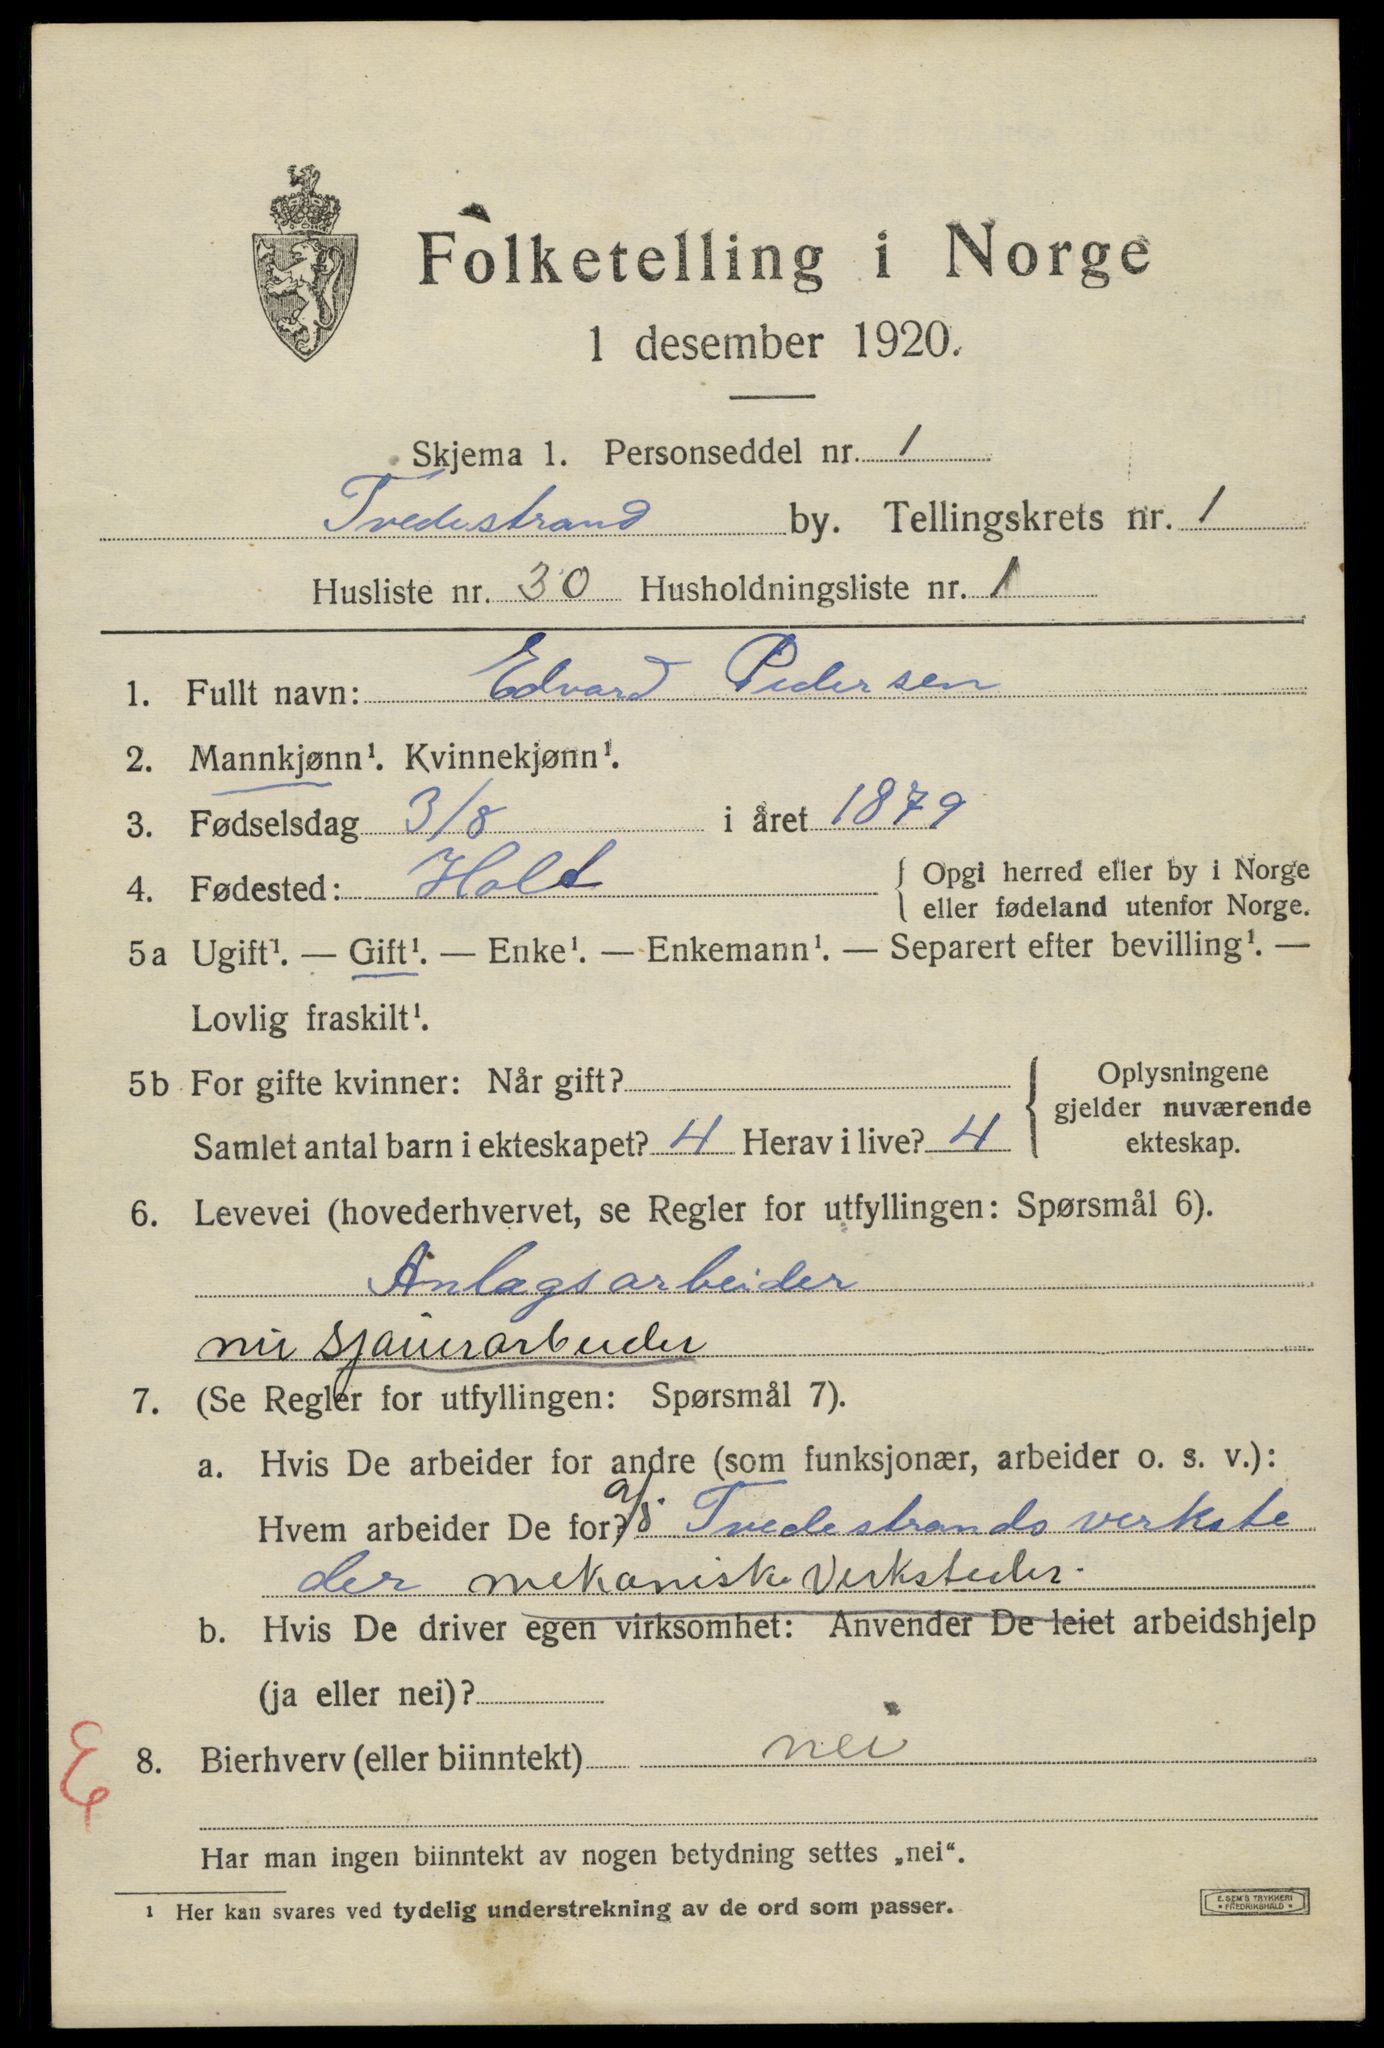 Folketelling i Norge
1 desember 1920.
Skjema 1. Personseddel nr. 1
Tvedestrand by. Tellingskrets nr. 1
Husliste nr. 30 Husholdningsliste nr. 1
1. Fullt navn: Edvard Pedersen
2. Mannkjønn¹. Kvinnekjønn¹.
3. Fødselsdag 3/8 i året 1879
4. Fødested: Holt { Opgi herred eller by i Norge
eller fødeland utenfor Norge.
5a Ugift¹. — Gift¹. — Enke¹. — Enkemann¹. — Separert efter bevilling¹. —
Lovlig fraskilt¹.
5b For gifte kvinner: Når gift? { Oplysningene
gjelder nuværende
Samlet antal barn i ekteskapet? 4 Herav i live? 4 ekteskap.
6. Levevei (hovederhvervet, se Regler for utfyllingen: Spørsmål 6).
Anlægsarbeider
sjauerarbeider
7. (Se Regler for utfyllingen: Spørsmål 7).
a. Hvis De arbeider for andre (som funksjonær, arbeider o. s. v.):
Hvem arbeider De for? a/s Tvedestrands verkste
der mekaniske Verksteder.
b. Hvis De driver egen virksomhet: Anvender De leiet arbeidshjelp
(ja eller nei)?
E
8. Bierhverv (eller biinntekt) nei
Har man ingen biinntekt av nogen betydning settes „nei“.
1 Her kan svares ved tydelig understrekning av de ord som passer.
E. SEM'S TRYKKERI
* FREDRIKSHALD *